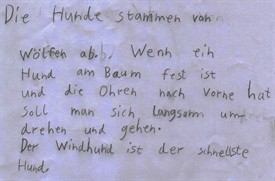 Die Hunde stammen von
Wölfen ab. Wenn ein
Hund am Baum fest ist
und die Ohren nach Vorne hat
soll man sich Langsam um-
drehen und gehen.
Der Windhund ist der schnellste
Hund.